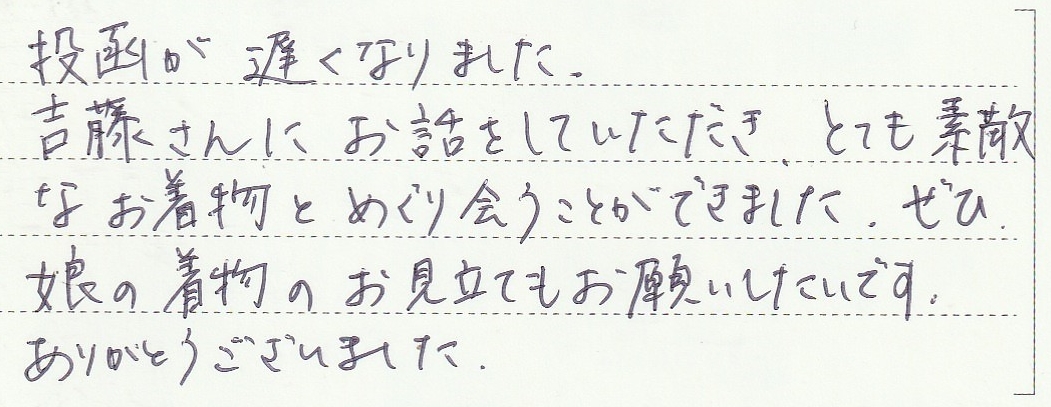 投函が遅くなりました。
吉藤さんにお話をしていただき、とても素敵
なお着物とめぐり会うことができました。ぜひ、
娘の着物のお見立てもお願いしたいです。
ありがとうございました。